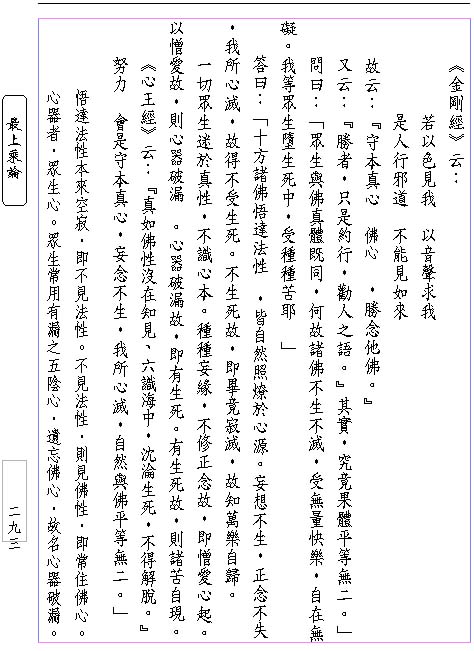 《金剛經》云：
若以色見我　以音聲求我
是人行邪道　不能見如來
故云：『守本真心　佛心　，勝念他佛。』
又云：『勝者，只是約行，勸人之語。』其實，究竟果體平等無二。」
問曰：「眾生與佛真體既同，何故諸佛不生不滅，受無量快樂，自在無
礙。我等眾生墮生死中，受種種苦耶　」
答曰：「十方諸佛悟達法性　，皆自然照燎於心源。妄想不生，正念不失
，我所心滅，故得不受生死。不生死故，即畢竟寂滅，故知萬樂自歸。
一切眾生迷於真性，不識心本。種種妄緣，不修正念故，即憎愛心起。
以憎愛故，則心器破漏　。心器破漏故，即有生死。有生死故，則諸苦自現。
《心王經》云：『真如佛性沒在知見、六識海中，沈淪生死，不得解脫。』
努力　會是守本真心，妄念不生，我所心滅，自然與佛平等無二。」
悟達法性本來空寂，即不見法性。不見法性，則見佛性，即常住佛心。
心器者，眾生心。眾生常用有漏之五陰心，遺忘佛心，故名心器破漏。
最上乘論
二九三